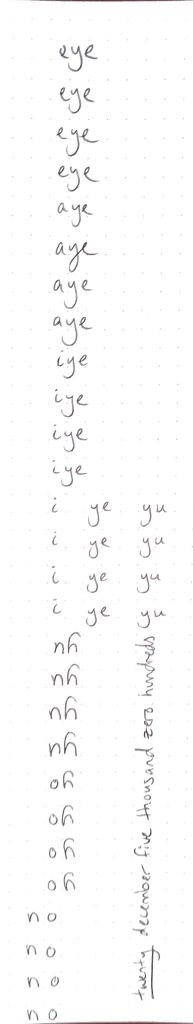 eye
eye
eye
eye
aye
aye
aye
aye
iye
iye
iye
iye
i ye yu
i ye yu
i ye yu
i ye yu
nh
nh
nh
nh
oh
oh
oh
oh
n o
n o
n o
n o
twenty december five thousand zero hundreds